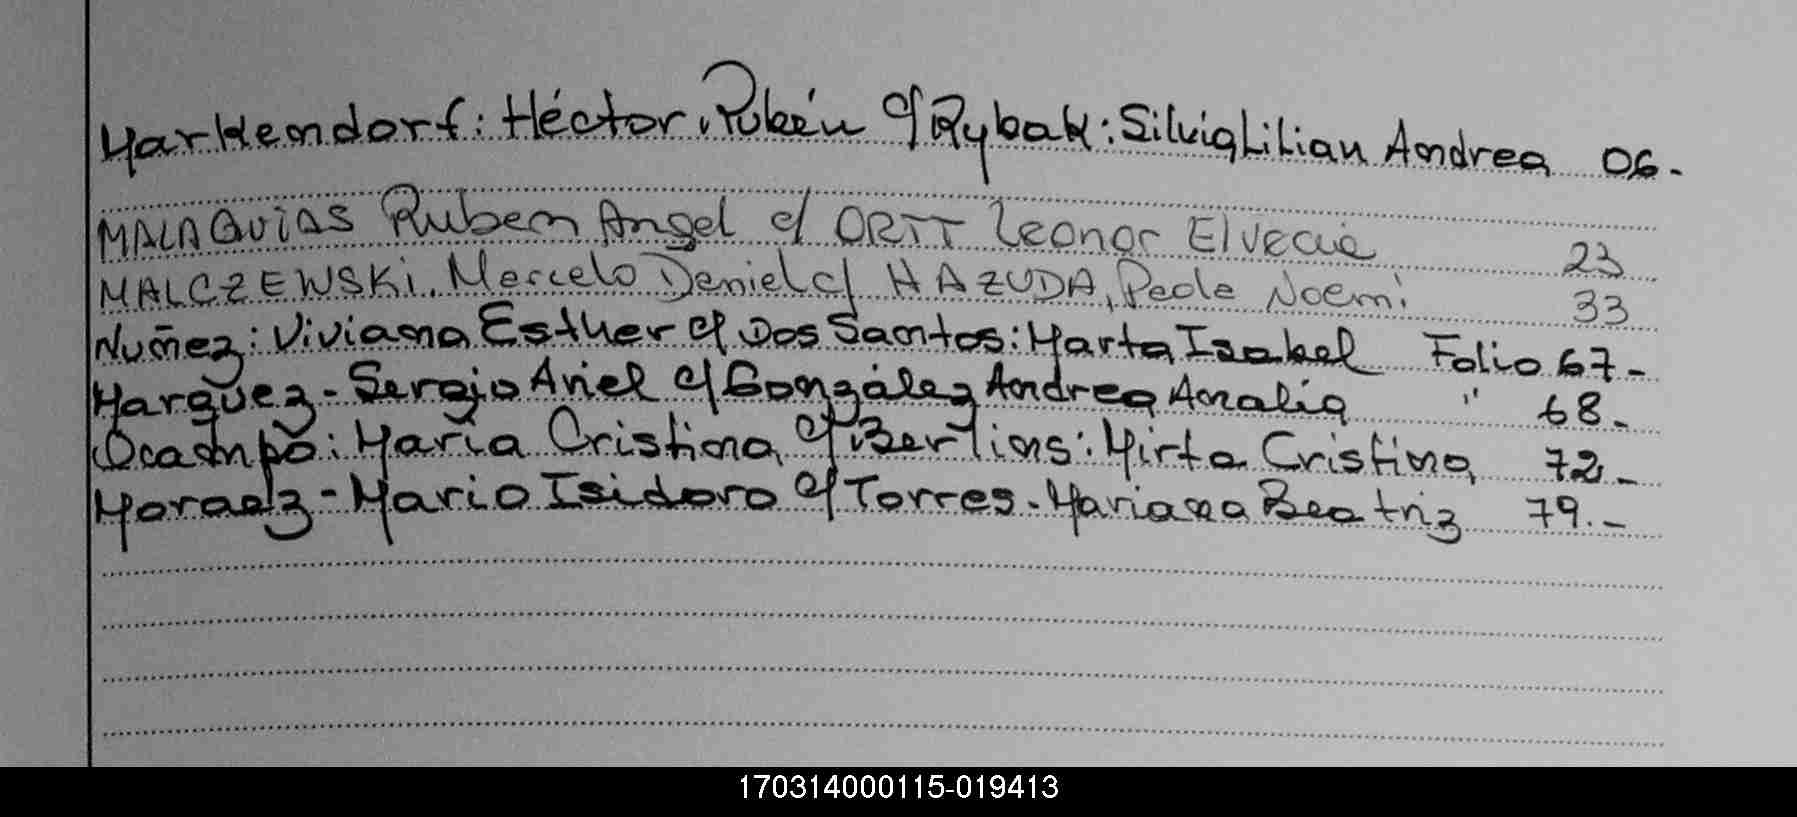 Markendorf: Héctor, Rubén c/ Rybak: Silvia Lilian Andrea 06.
MALAQUIAS Ruben Angel c/ ORTT Leonor Elvecia 23
MALCZEWSKI, Marcelo Daniel c/ HAZUDA, Paola Noemi 33
Nuñez: Viviana Esther c/ Dos Santos: Marta Isabel Folio 67-
Marquez - Sergio Ariel c/ González Andrea Analia " 68.-
Ocampo: María Cristina c/ Bertins: Mirta Cristina 72.-
Moraez - Mario Isidoro c/ Torres - Mariana Beatriz 79.-
170314000115-019413